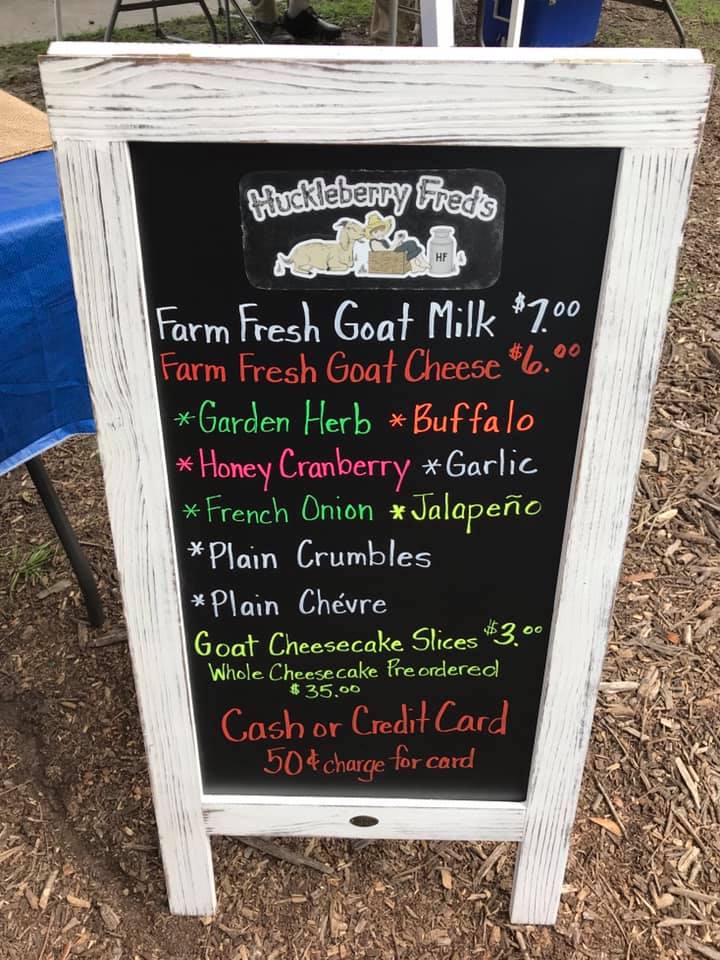 Huckleberry Fred's
HF
Farm Fresh Goat Milk $7.00
Farm Fresh Goat Cheese $6.00
*Garden Herb *Buffalo
*Honey Cranberry *Garlic
*French Onion *Jalapeño
*Plain Crumbles
*Plain Chévre
Goat Cheesecake Slices $3.00
Whole Cheesecake Preordered
$35.00
Cash or Credit Card
50¢ charge for card